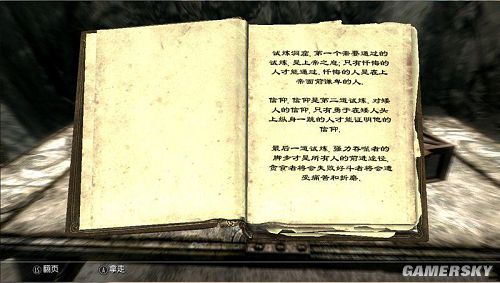 试炼洞窟,第一个需要通过的
试炼,是上帝之息;只有忏悔的
人才能通过,忏悔的人是在上
帝面前谦卑的人.
信仰,信仰是第二道试炼,对矮
人的信仰,只有勇于在矮人头
上纵身一跳的人才能证明他的
信仰.
最后一道试炼,强力吞噬者的
脚步才是所有人的前进途径,
贪食者将会失败好斗者将会遭
受痛苦和折磨.
翻页
拿走
GAMERSKY